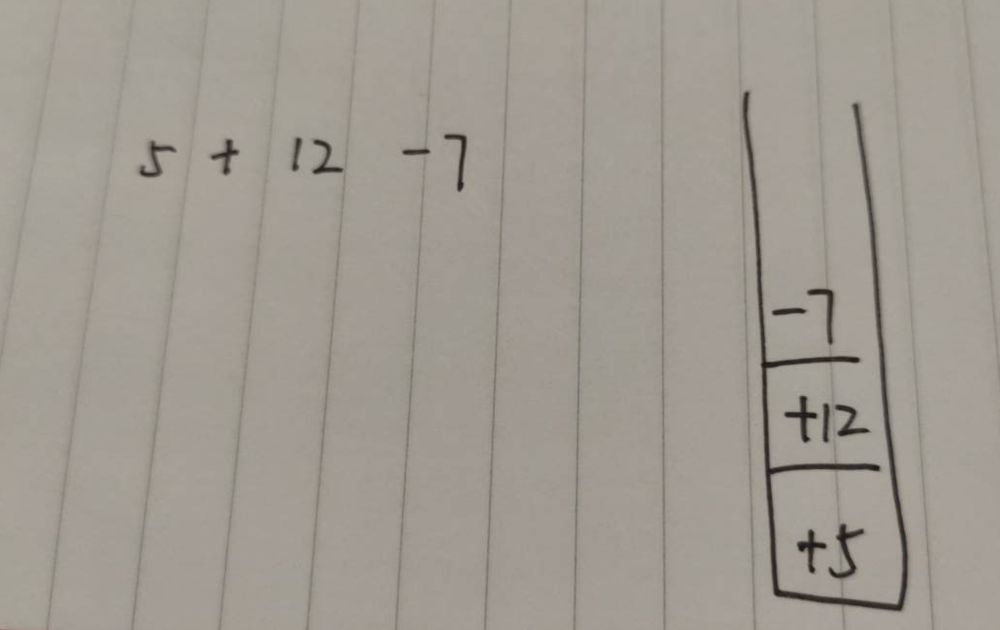 5 + 12 -7
-7
+12
+5